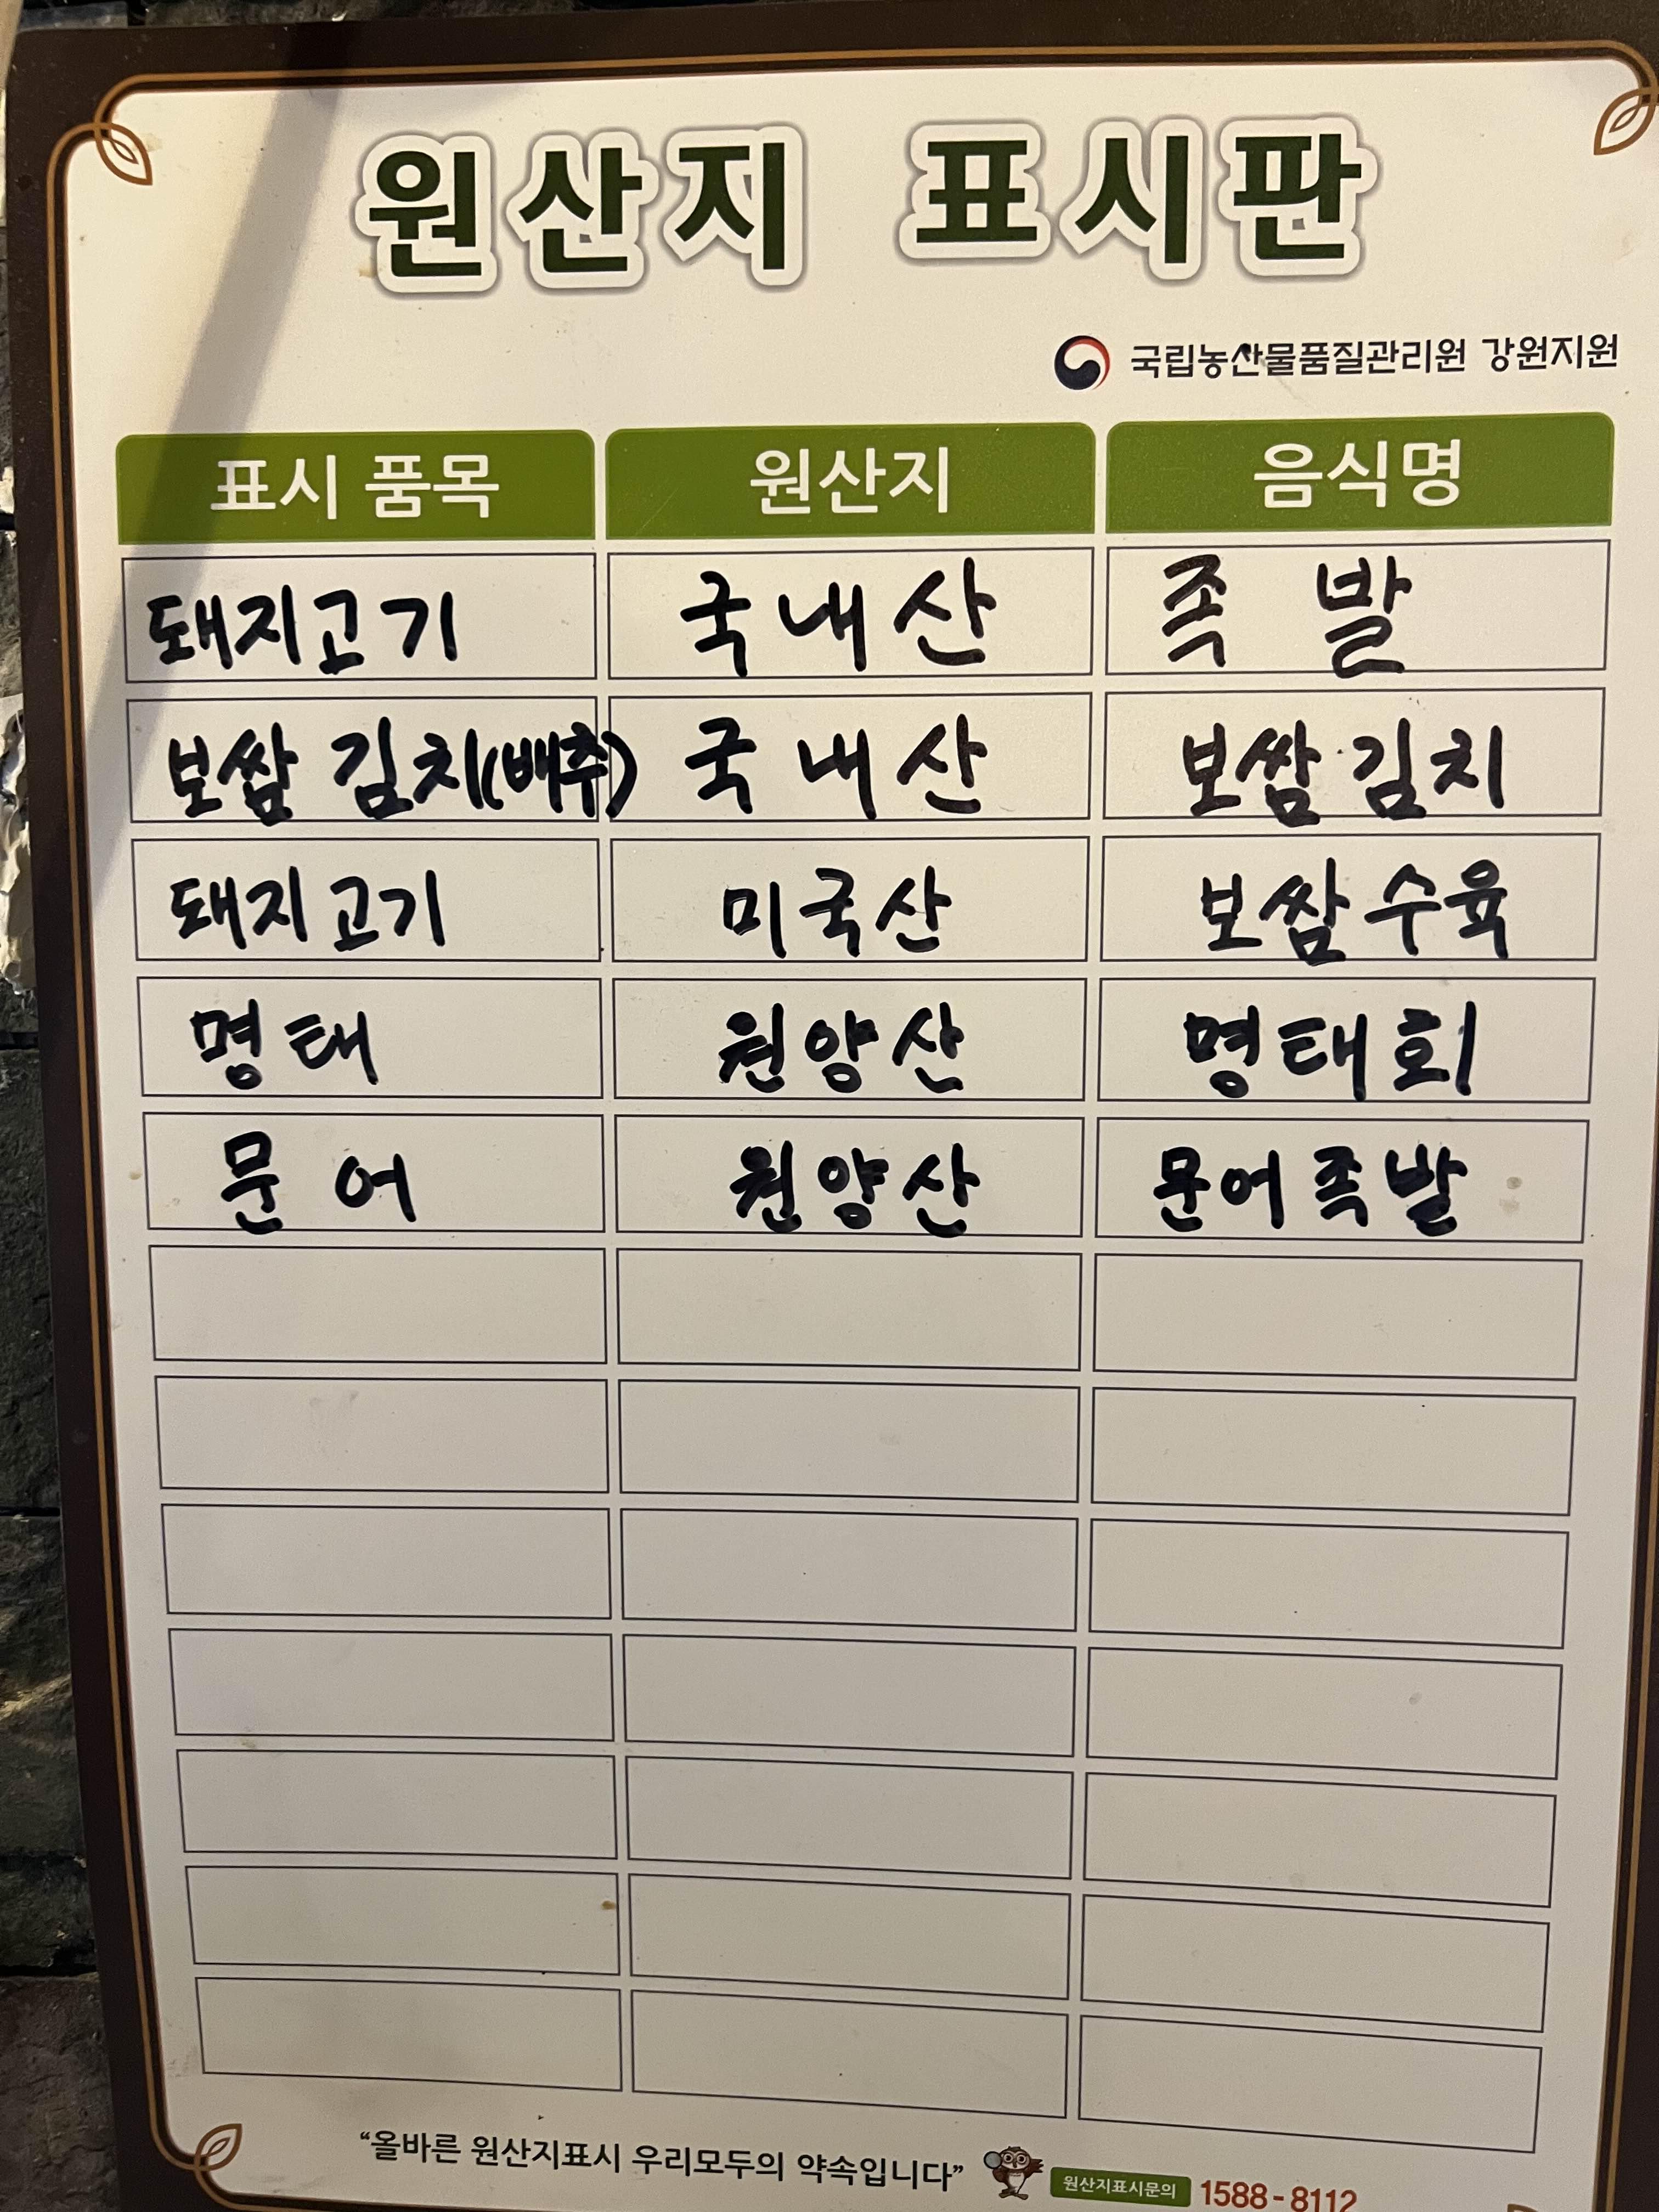 원산지 표시판
국립농산물품질관리원 강원지원
표시 품목 원산지 음식명
돼지고기 국내산 족발
보쌈 김치(배추) 국내산 보쌈김치
돼지고기 미국산 보쌈수육
명태 원양산 명태회
문어 원양산 문어족발
“올바른 원산지표시 우리모두의 약속입니다” 원산지표시문의 1588-8112